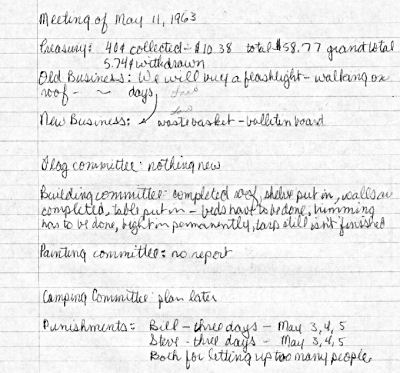 Meeting of May 11, 1963
Treasury: 40¢ collected - $10.38 total $58.77 grand total
5.74¢ withdrawn
Old Business: We will buy a flashlight - walking on
roof - ~ days
New Business: wastebasket - bulliten board
Flag committee: nothing new
Building committee: completed roof, shelve put in, walls are
completed, table put in - beds have to be done, trimming
has to be done, light in permanently, tarp still isn't finished
Painting committee: no report
Camping Committee: plan later
Punishments: Bill - three days - May 3, 4, 5
Steve - three days - May 3, 4, 5
Both for letting up too many people